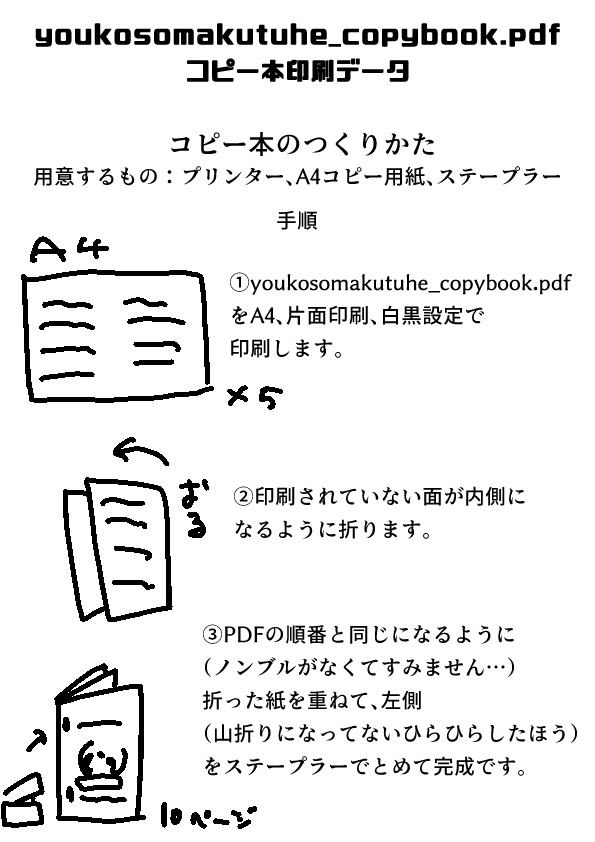 youkosomakutuhe_copybook.pdf
コピー本印刷データ
コピー本のつくりかた
用意するもの：プリンター、A4コピー用紙、ステープラー
手順
A4
①youkosomakutuhe_copybook.pdf
をA4、片面印刷、白黒設定で
印刷します。
×5
おる
②印刷されていない面が内側に
なるように折ります。
③PDFの順番と同じになるように
（ノンブルがなくてすみません…）
折った紙を重ねて、左側
（山折りになってないひらひらしたほう）
をステープラーでとめて完成です。
10ページ